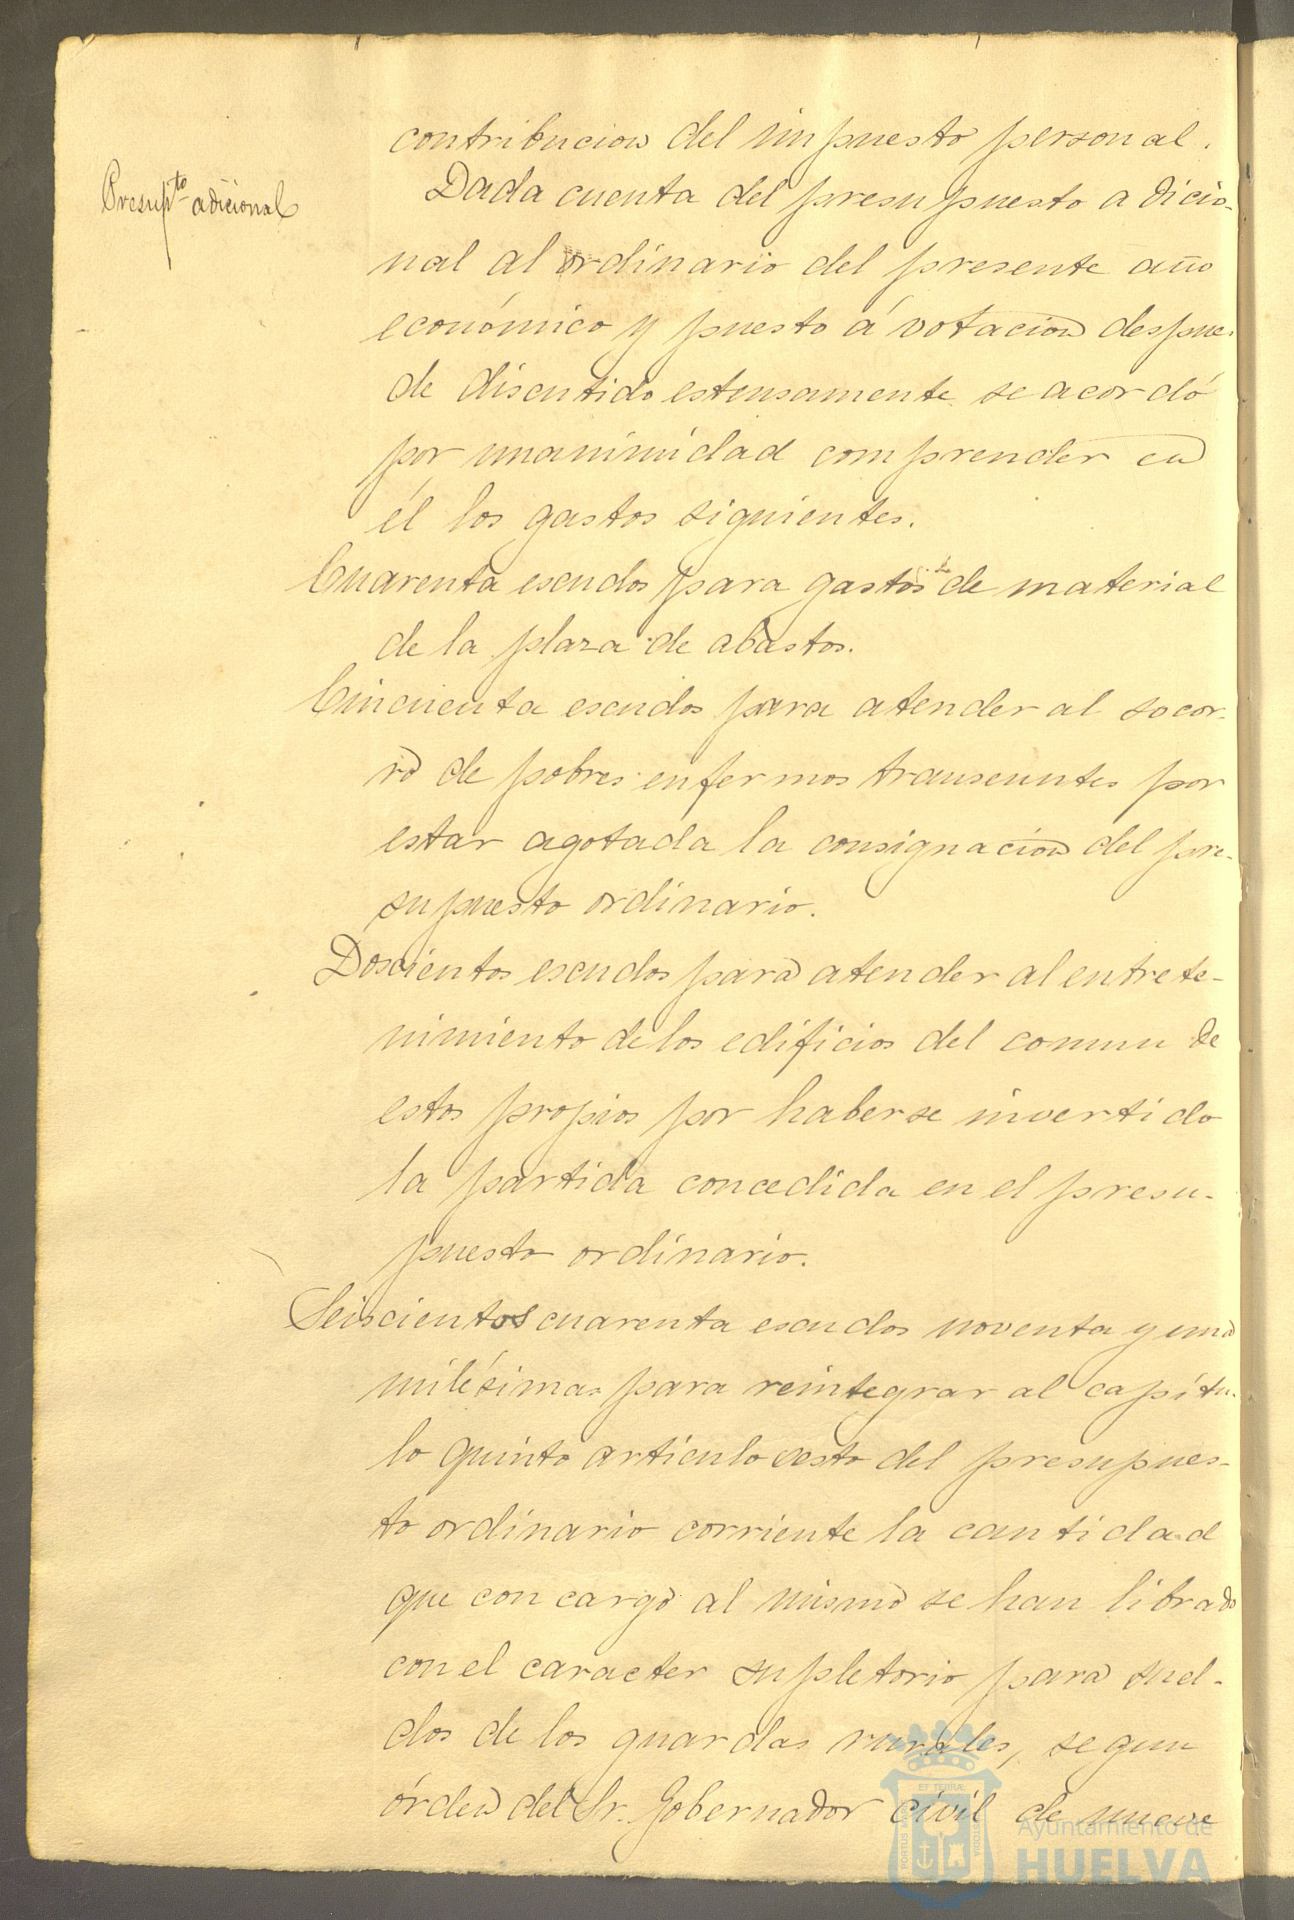 contribucion del impuesto personal.
Presup.to adicional
Dada cuenta del presupuesto adicio-
nal al ordinario del presente año
económico y puesto á votacion despues
de discutido estensamente se acordó
por unanimidad comprender en
él los gastos siguientes.
Cuarenta escudos para gastos de material
de la plaza de abastos.
Cincuenta escudos para atender al socor-
ro de pobres enfermos transeuntes por
estar agotada la consignacion del pre-
supuesto ordinario.
Doscientos escudos para atender al entrete-
nimiento de los edificios del comun de
estos propios por haberse invertido
la partida concedida en el presu-
puesto ordinario.
Seiscientos cuarenta escudos noventa y una
milésimas para reintegrar al capítu-
lo quinto articulo sesto del presupues-
to ordinario corriente la cantidad
que con cargo al mismo se han librado
con el caracter supletorio para suel-
dos de los guardas rurales, segun
órden del Sr. Gobernador civil de nueve
PORTUS MARIS ET TERRÆ CUSTODIA
Ayuntamiento de
HUELVA